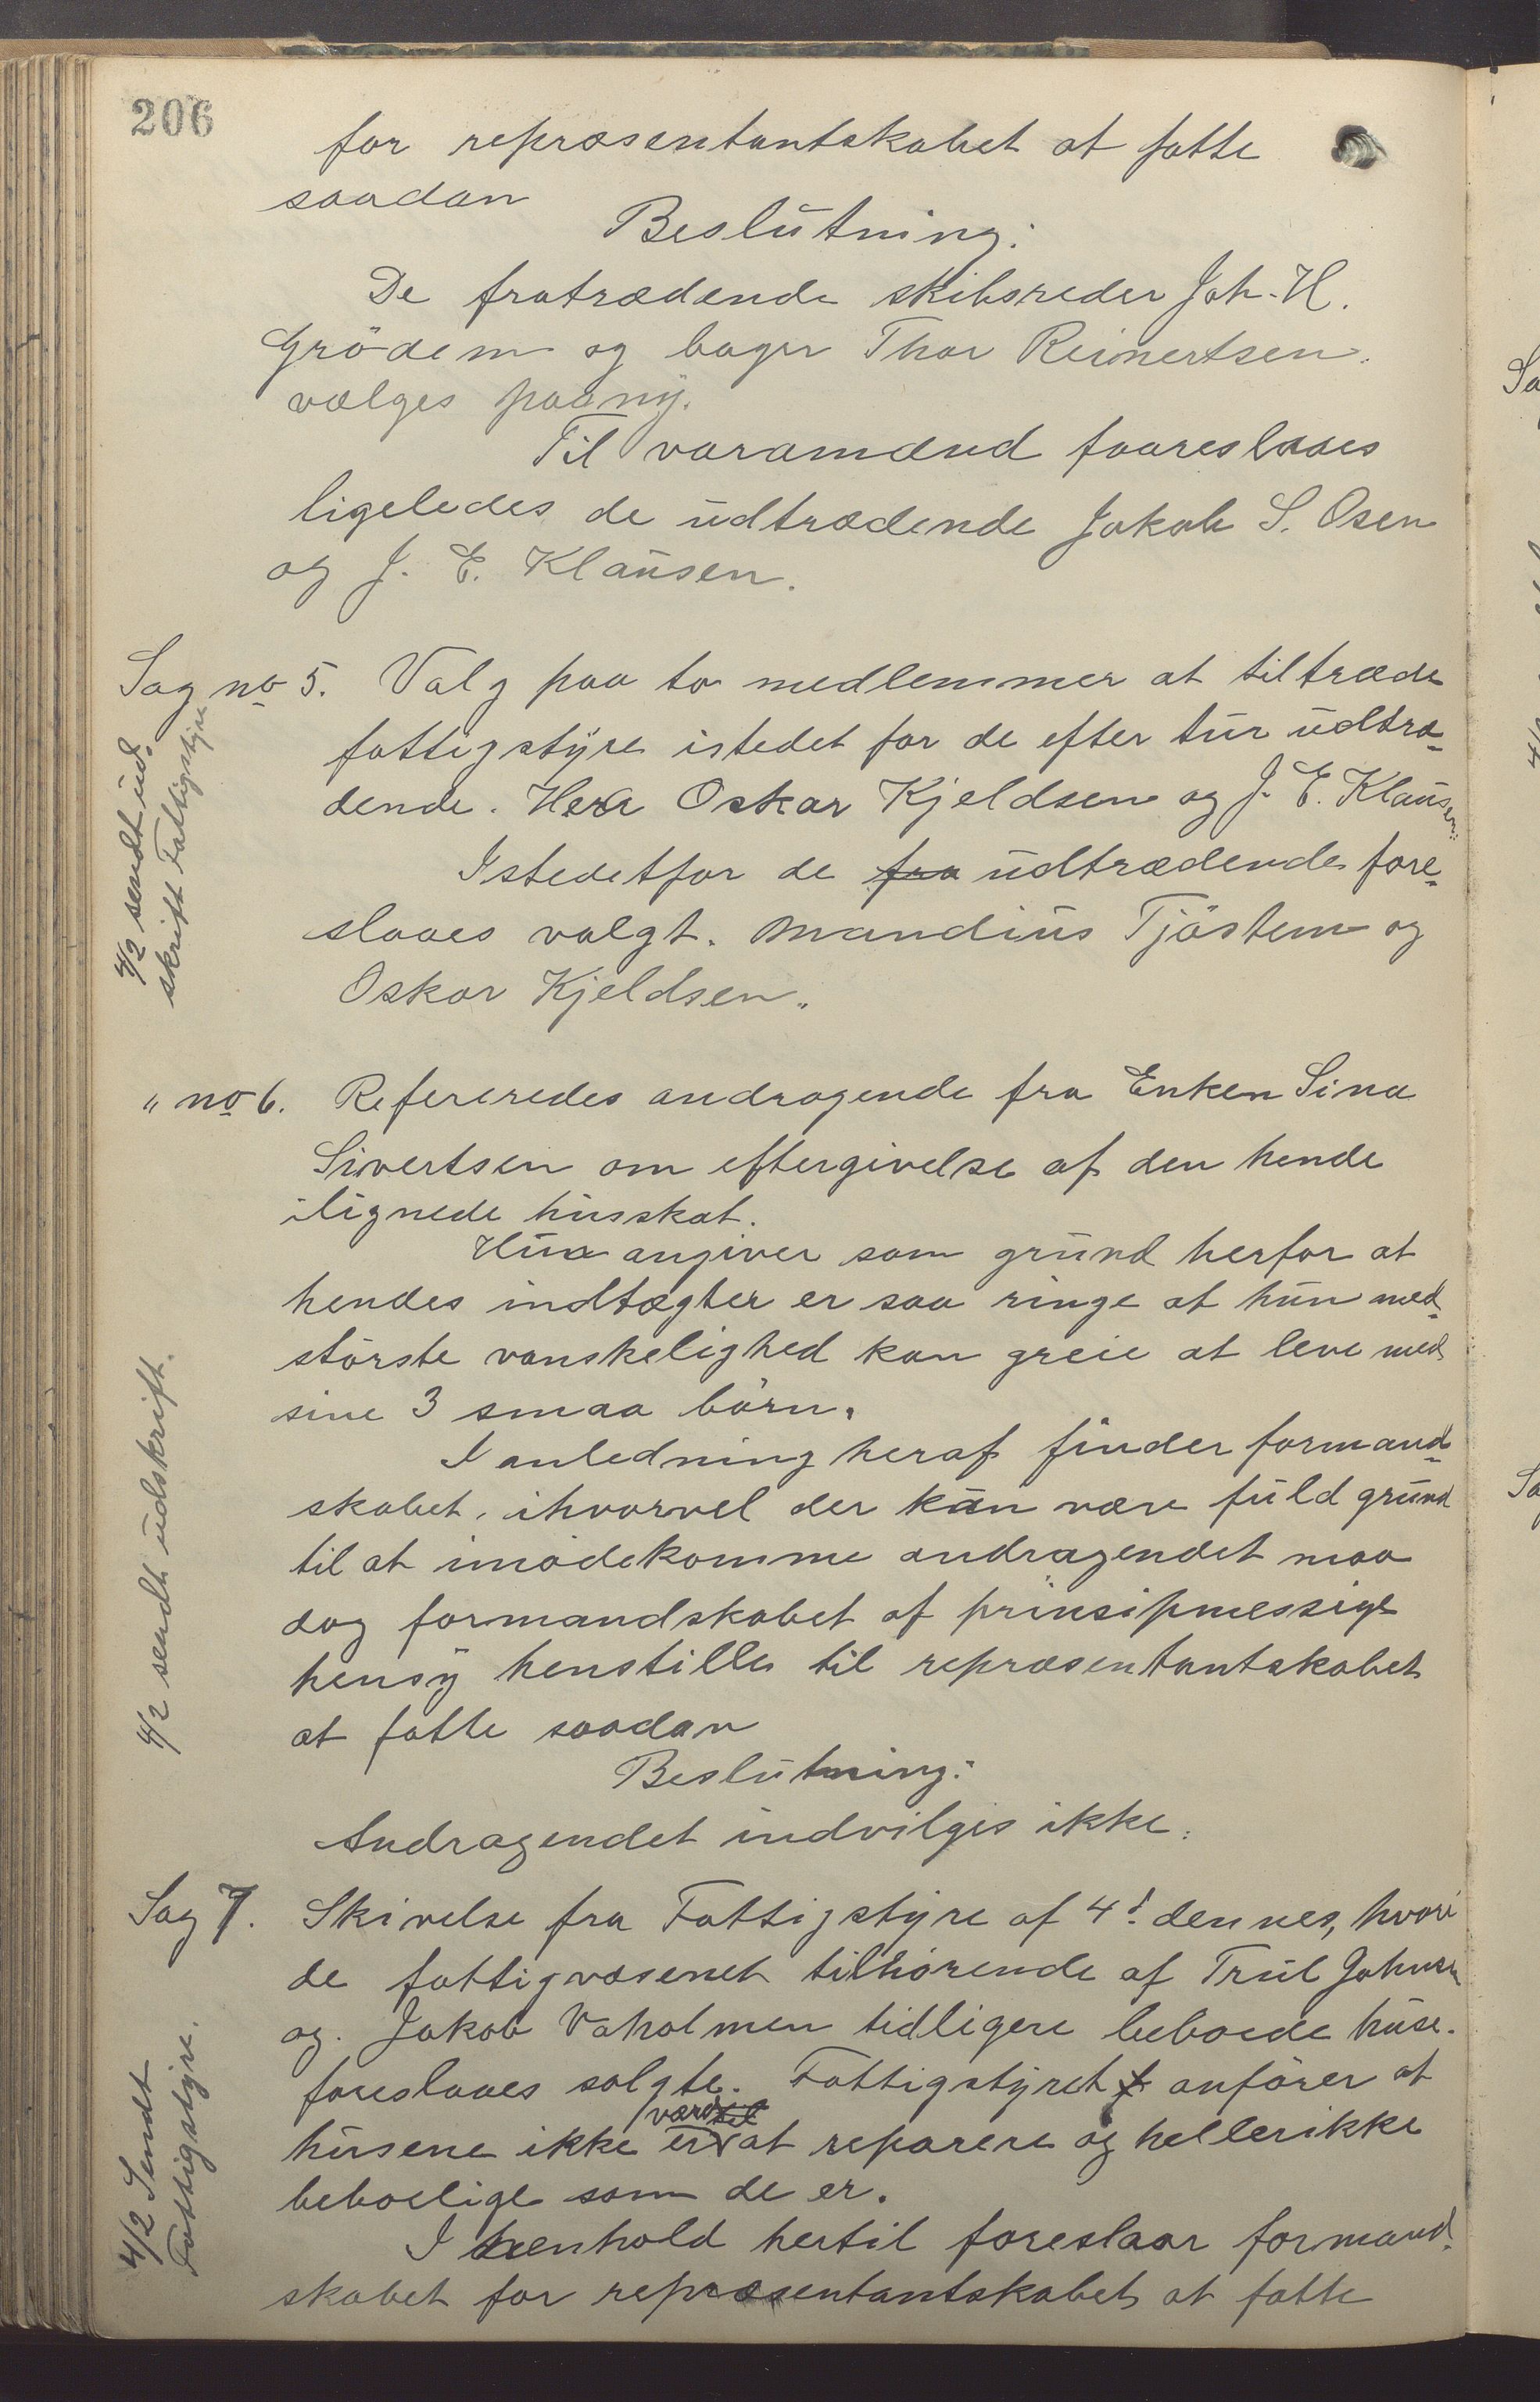 206
for repræsentantskabet at fatte
saadan
Beslutning:
De fratrædende skibsreder Joh. H.
Grödem og bager Thor Reinertsen.
vælges paany.
Til varamænd faareslaaes
ligeledes de udtrædende Jakob S. Osen
og J. E. Klausen.
Sag no 5. Valg paa to medlemmer at tiltræde
fattigstyre istedet for de efter tur udtræ-
dende. Herr Oskar Kjeldsen og J. E. Klausen:
Istedetfor de fra udtrædende fore-
slaaes valgt. Mandius Tjöstem og
Oskar Kjeldsen.
4/2 sendt ud-
skrift Fattigstyre
" no 6. Refereredes andragende fra Enken Sina
Sivertsen om eftergivelse af den hende
ilignede husskat.
Hun angiver som grund herfor at
hendes indtægter er saa ringe at hun med-
störste vanskelighed kan greie at leve med
sine 3 smaa börn.
I anledning heraf finder formand-
skabet, ihvorvel der kan være fuld grund
til at imödekomme andragendet maa
dog formandskabet af prinsipmessige
hensy henstille til repræsentantskabet
at fatte saadan
Beslutning:
Andragendet indvilges ikke.
4/2 sendt udskrift.
Sag 7. Skivelse fra Fattigstyre af 4d. dennes, hvori
de fattigvæsenet tilhörende af Trul Johnsen
og. Jakob Vaholmen tidligere beboede huse.
foreslaaes solgte. Fattigstyret anförer at
værd til
husene ikke er at reparere og hellerikke
beboelige som de er.
I henhold hertil foreslaar formand-
skabet for repræsentantskabet at fatte
4/2 Sendt
Fattigstyre.